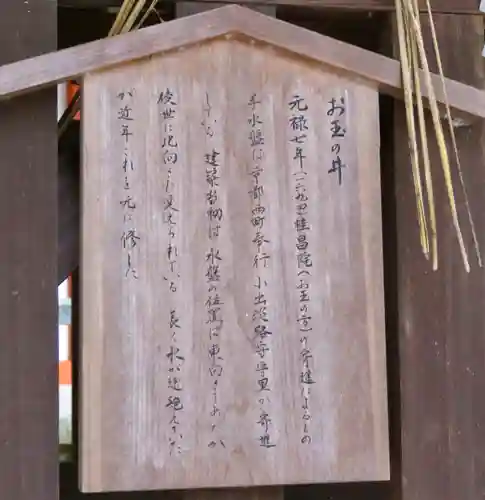 お玉の井
元禄七年(一六九四)桂昌院(お玉の方)の寄進によるもの
手水盤は京都西町奉行小出淡路守守里が寄進
している 建築当初は水盤の位置は東向きであったが
後世に北向きに変えられている 長く水が途絶えていた
が近年これを元に修した